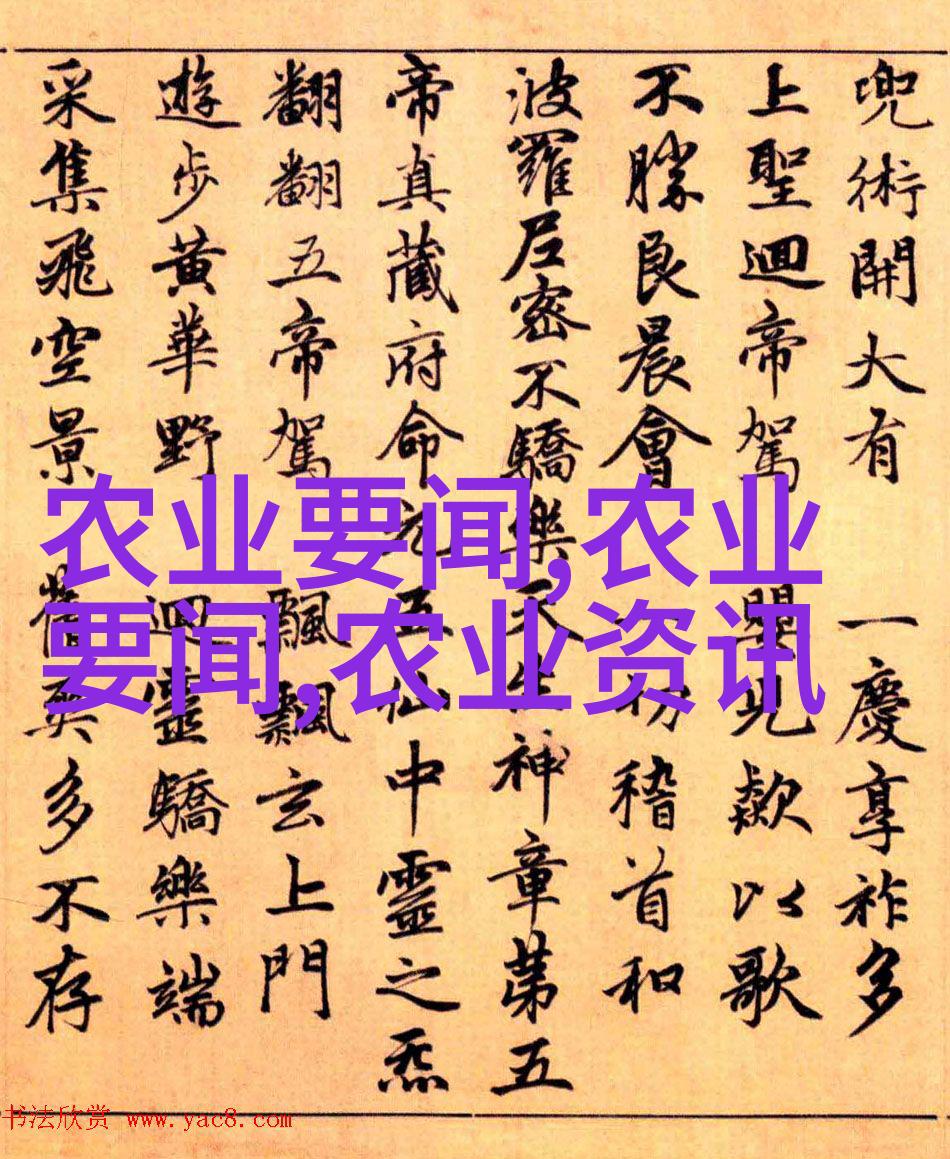 兜術開大有 一慶享祚多
上聖迴帝駕 見歘以歌
不勝良晨會 切稽首和
波羅尼密不驕樂天生神章第五
帝真藏府命元五仙中靈之炁
翻翻五帝駕 飄飄玄上門
遊步黃華野 迴靈驕樂端
采集飛空景 爽多不存
农业要闻,农业
要闻,农业资讯
书法欣赏 www.yac8.com